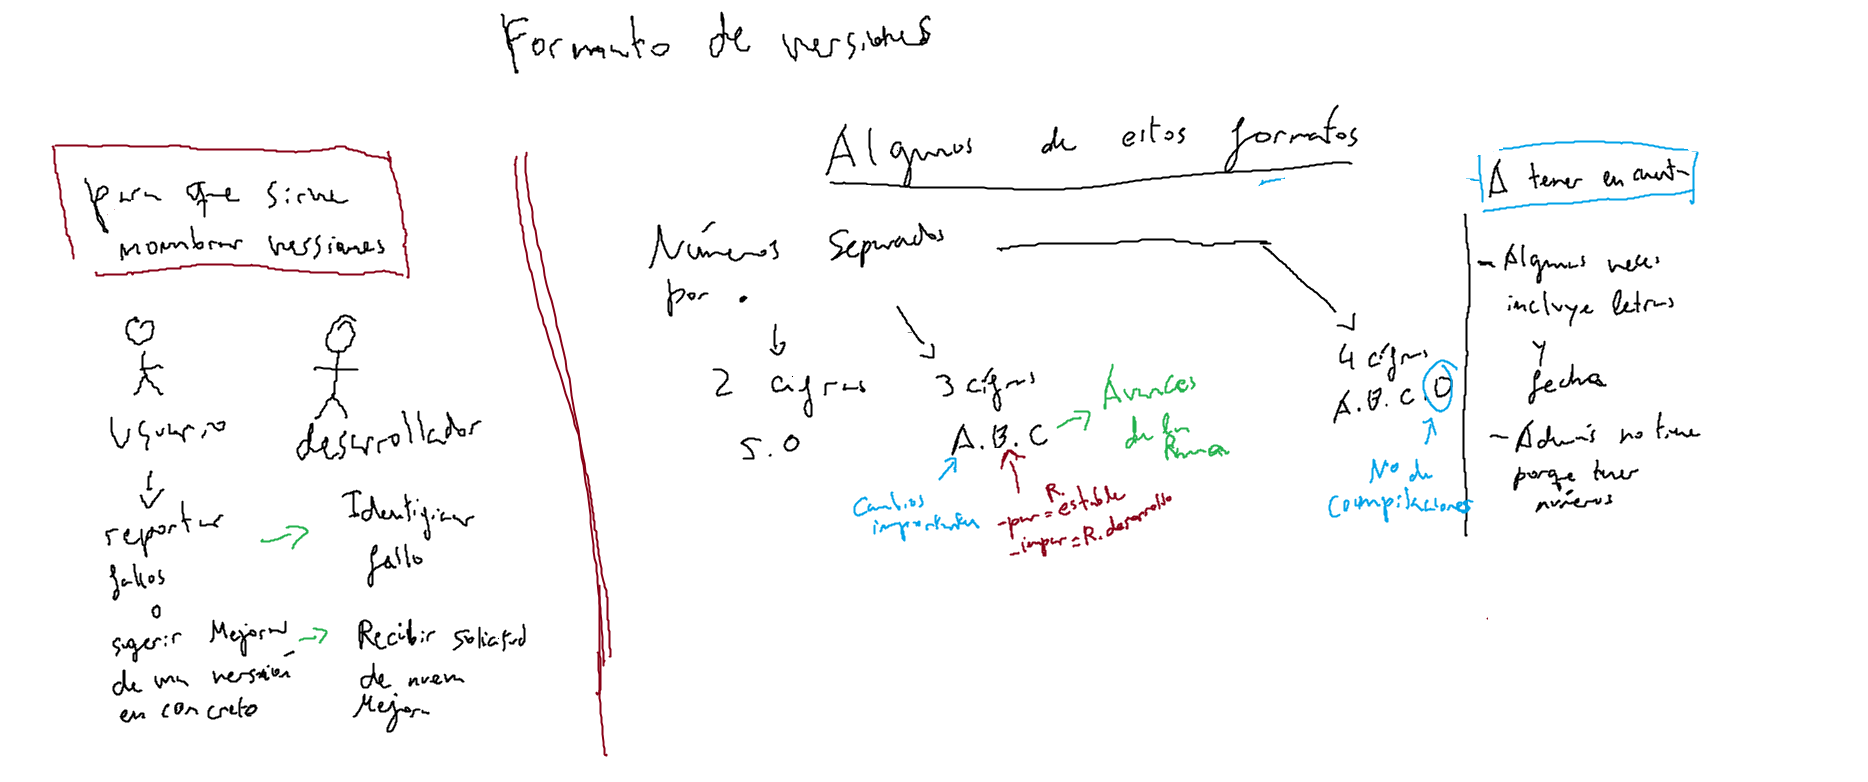 Formato de versiones
para que sirve
nombrar versiones
Usuario
desarrollador
reportar
fallos
o
sugerir Mejoras
de una versión
en concreto
Identificar
fallo
Recibir solicitud
de nueva
Mejora
Algunos de estos formatos
Números separados
por .
2 cifras
5.0
3 cifras
A.B.C
Avances
de la
Rama
Cambios
importantes
R.
-par=estable
-impar=R.desarrollo
4 cifras
A.B.C.D
Nº de
compilaciones
A tener en cuenta
- Algunas veces
incluye letras
y
fecha
- Además no tiene
porque tener
números